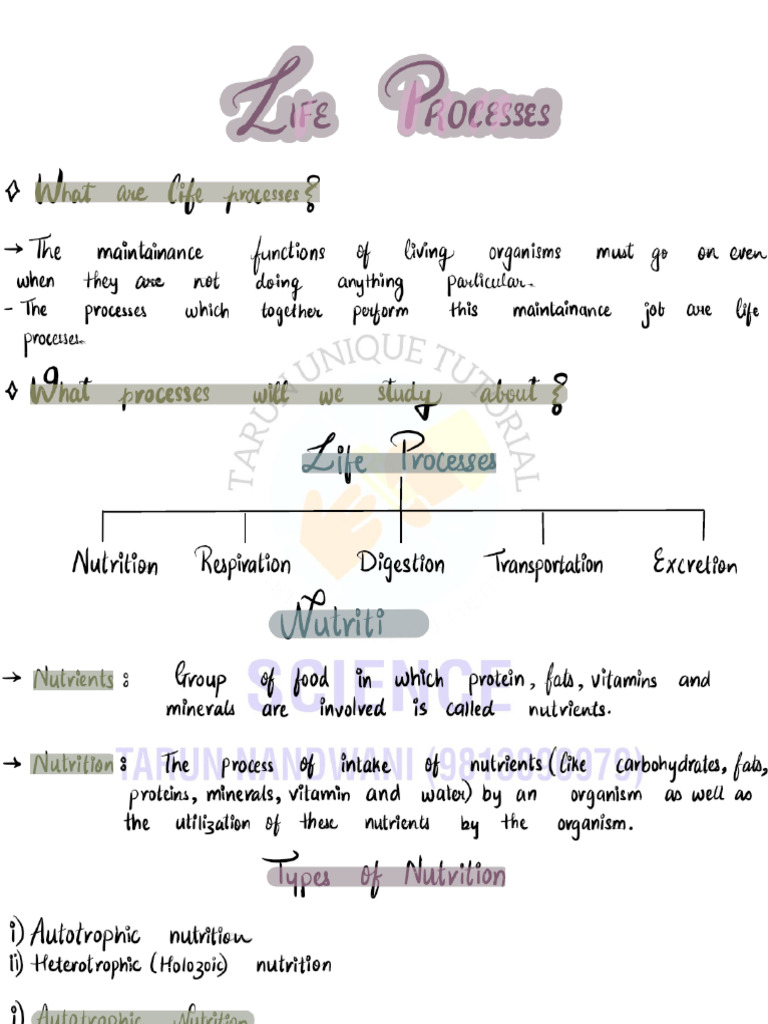 LIFE PROCESSES
What are life processes?
→ The maintainance functions of living organisms must go on even
when they are not doing anything particular.
- The processes which together perform this maintainance job are life
processes.
What processes will we study about?
TARUN UNIQUE TUTORIAL
Life Processes
Nutrition Respiration Digestion Transportation Excretion
Nutriti
SCIENCE
→ Nutrients : Group of food in which protein, fats, vitamins and
minerals are involved is called nutrients.
TARUN NANDWANI
→ Nutrition : The process of intake of nutrients (like carbohydrates, fats,
proteins, minerals, vitamin and water) by an organism as well as
the utilization of these nutrients by the organism.
Types of Nutrition
i) Autotrophic nutrition
ii) Heterotrophic (Holozoic) nutrition
i) Autotrophic Nutrition